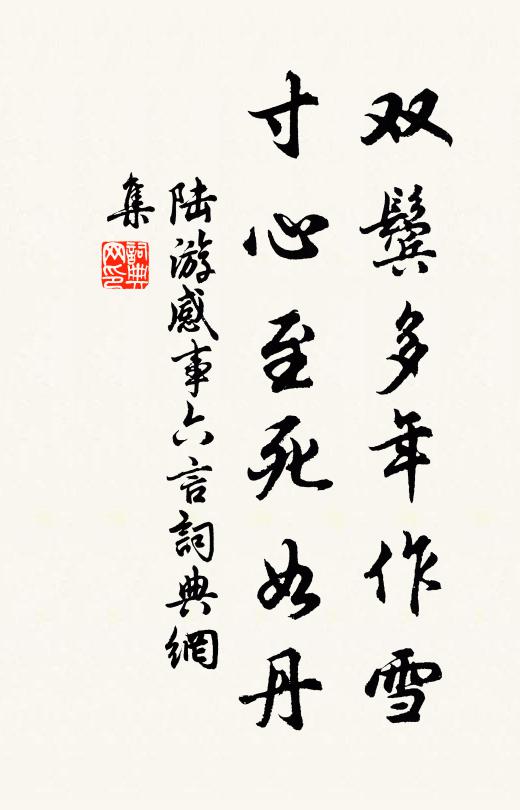 双鬓多年作雪
寸心至死如丹
陆游感事六言詞典網
集
詞典
网印